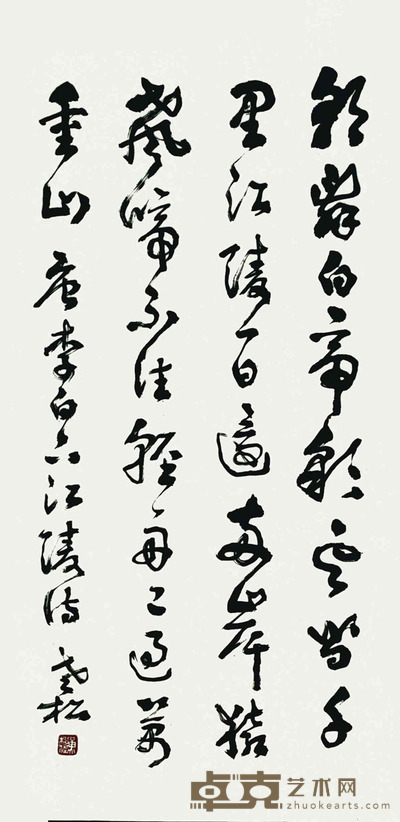 朝辭白帝彩云間千
里江陵一日還兩岸猿
聲啼不住輕舟已過萬
重山 唐李白下江陵诗
卓克艺术网
zhuokearts.com